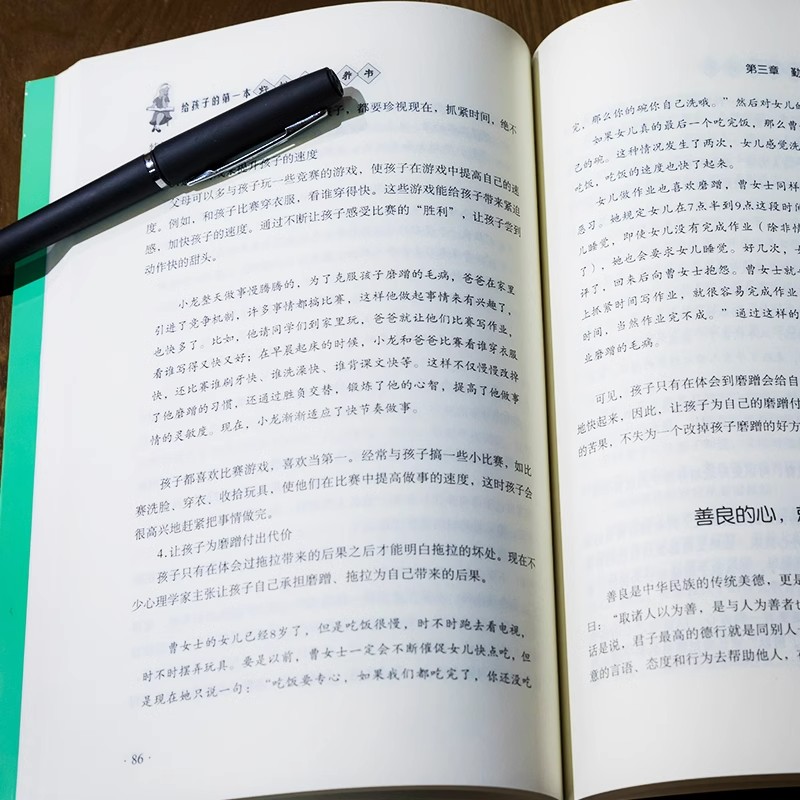 给孩子的第一本
教 书
子，都要珍视现在，抓紧时间，绝不
升孩子的速度
父母可以多与孩子玩一些竞赛的游戏，使孩子在游戏中提高自己的速
度。例如，和孩子比赛穿衣服，看谁穿得快。这些游戏能给孩子带来紧迫
感，加快孩子的速度。通过不断让孩子感受比赛的“胜利”，让孩子尝到
动作快的甜头。
小龙整天做事慢腾腾的，为了克服孩子磨蹭的毛病，爸爸在家里
引进了竞争机制，许多事情都搞比赛，这样他做起事情来有兴趣了，
也快多了。比如，他请同学们到家里玩，爸爸就让他们比赛写作业，
看谁写得又快又好；在早晨起床的时候，小龙和爸爸比赛看谁穿衣服
快，还比赛谁刷牙快、谁洗澡快、谁背课文快等。这样不仅慢慢改掉
了他磨蹭的习惯，还通过胜负交替，锻炼了他的心智，提高了他做事
情的灵敏度。现在，小龙渐渐适应了快节奏做事。
孩子都喜欢比赛游戏，喜欢当第一。经常与孩子搞一些小比赛，如比
赛洗脸、穿衣、收拾玩具，使他们在比赛中提高做事的速度，这时孩子会
很高兴地赶紧把事情做完。
4.让孩子为磨蹭付出代价
孩子只有在体会过拖拉带来的后果之后才能明白拖拉的坏处。现在不
少心理学家主张让孩子自己承担磨蹭、拖拉为自己带来的后果。
曹女士的女儿已经8岁了，但是吃饭很慢，时不时跑去看电视，
时不时摆弄玩具。要是以前，曹女士一定会不断催促女儿快点吃，但
是现在她只说一句：“吃饭要专心，如果我们都吃完了，你还没吃
·86·
第三章 勤
完，那么你的碗你自己洗哦。”然后对女儿的
如果女儿真的最后一个吃完饭，那么曹
己的碗。这种情况发生了两次，女儿感觉洗
吃饭，吃饭的速度也快了起来。
女儿做作业也喜欢磨蹭，曹女士同样
恶习。她规定女儿在7点半到9点这段时间
儿睡觉，即使女儿没有完成作业（除非情
了），她也会要求女儿睡觉。好几次，
评了，回来后向曹女士抱怨。曹女士就
上抓紧时间写作业，就很容易完成作业
时间，当然作业完不成。”通过这样的
业磨蹭的毛病。
可见，孩子只有在体会到磨蹭会给自
地快起来，因此，让孩子为自己的磨蹭付
的苦果，不失为一个改掉孩子磨蹭的好方
善良的心，
善良是中华民族的传统美德，更是
曰：“取诸人以为善，是与人为善者也
话是说，君子最高的德行就是同别人
意的言语、态度和行为去帮助他人，